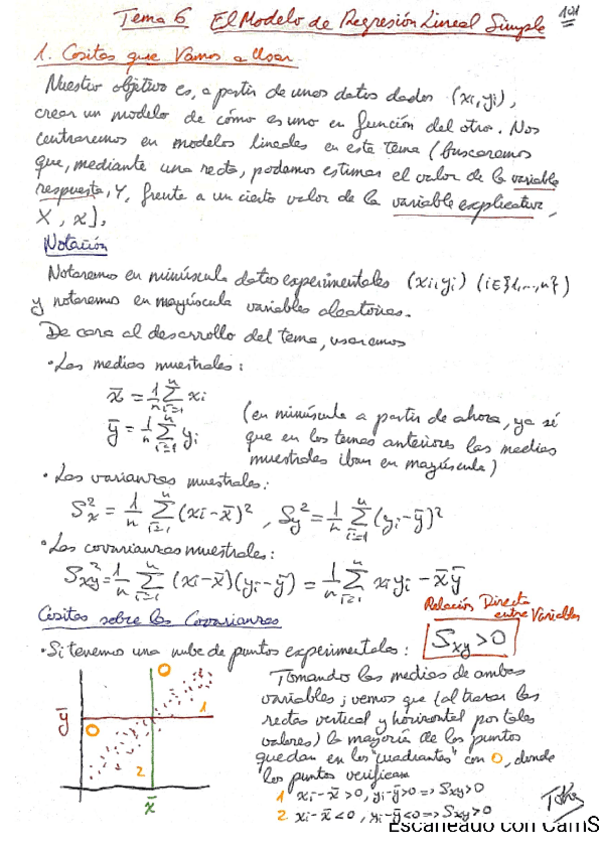 Tema 6 El Modelo de Regresión Lineal Simple 101
1. Cositas que Vamos a Usar
Nuestro objetivo es, a partir de unos datos dados (xi, yi),
crear un modelo de cómo es uno en función del otro. Nos
centraremos en modelos lineales en este tema (buscaremos
que, mediante una recta, podamos estimar el valor de la variable
respuesta, Y, frente a un cierto valor de la variable explicativa,
X, x).
Notación
Notaremos en minúscula datos experimentales (xi, yi) (i∈{1,...,n})
y notaremos en mayúscula variables aleatorias.
De cara al desarrollo del tema, usaremos
• Las medias muestrales:
x̄ = 1/n Σ_{i=1}^{n} xi
ȳ = 1/n Σ_{i=1}^{n} yi
(en minúscula a partir de ahora, ya sé
que en los temas anteriores las medias
muestrales iban en mayúscula)
• Las varianzas muestrales:
S_x^2 = 1/n Σ_{i=1}^{n} (xi-x̄)^2, S_y^2 = 1/n Σ_{i=1}^{n} (yi-ȳ)^2
• Las covarianzas muestrales:
S_xy^2 = 1/n Σ_{i=1}^{n} (xi-x̄)(yi-ȳ) = 1/n Σ_{i=1}^{n} xi yi - x̄ȳ
Cositas sobre las Covarianzas
Relación Directa
entre Variables
• Si tenemos una nube de puntos experimentales: Sxy>0
ȳ
O
O
1
2
x̄
Tomando las medias de ambas
variables; vemos que (al trazar las
rectas vertical y horizontal por tales
valores) la mayoría de los puntos
quedan en los "cuadrantes" con O, donde
los puntos verifican
1 xi-x̄>0, yi-ȳ>0 => Sxy>0
2. xi-x̄<0, yi-ȳ<0 => Sxy>0
Escaneado con CamS